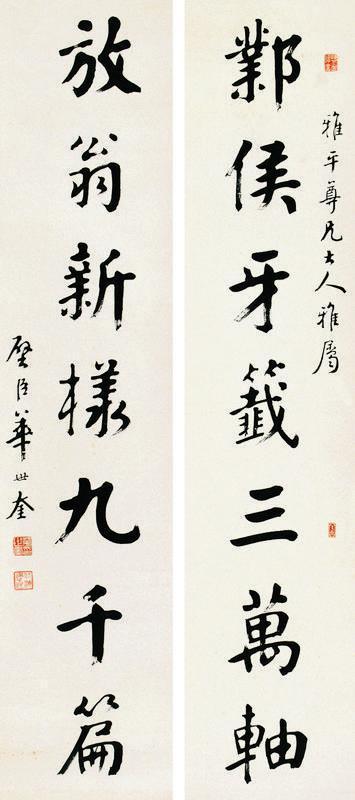 雅平尊兄大人雅屬
鄴侯牙籤三萬軸
放翁新樣九千篇
壁臣華世奎